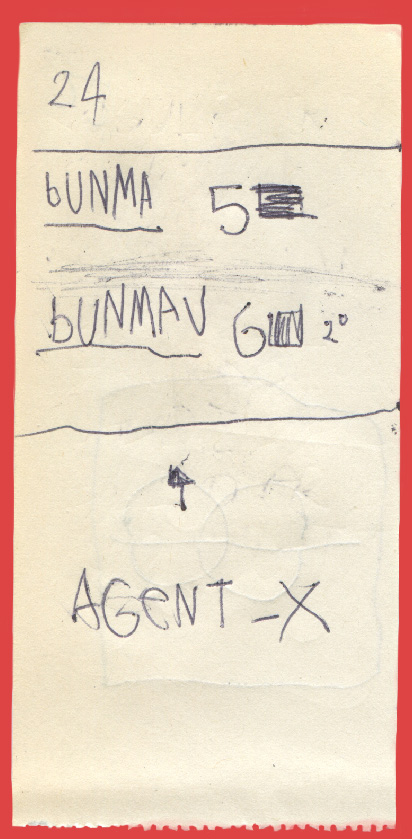 24
bUNMA 5
bUNMAV 6 2°
AGeNT -X